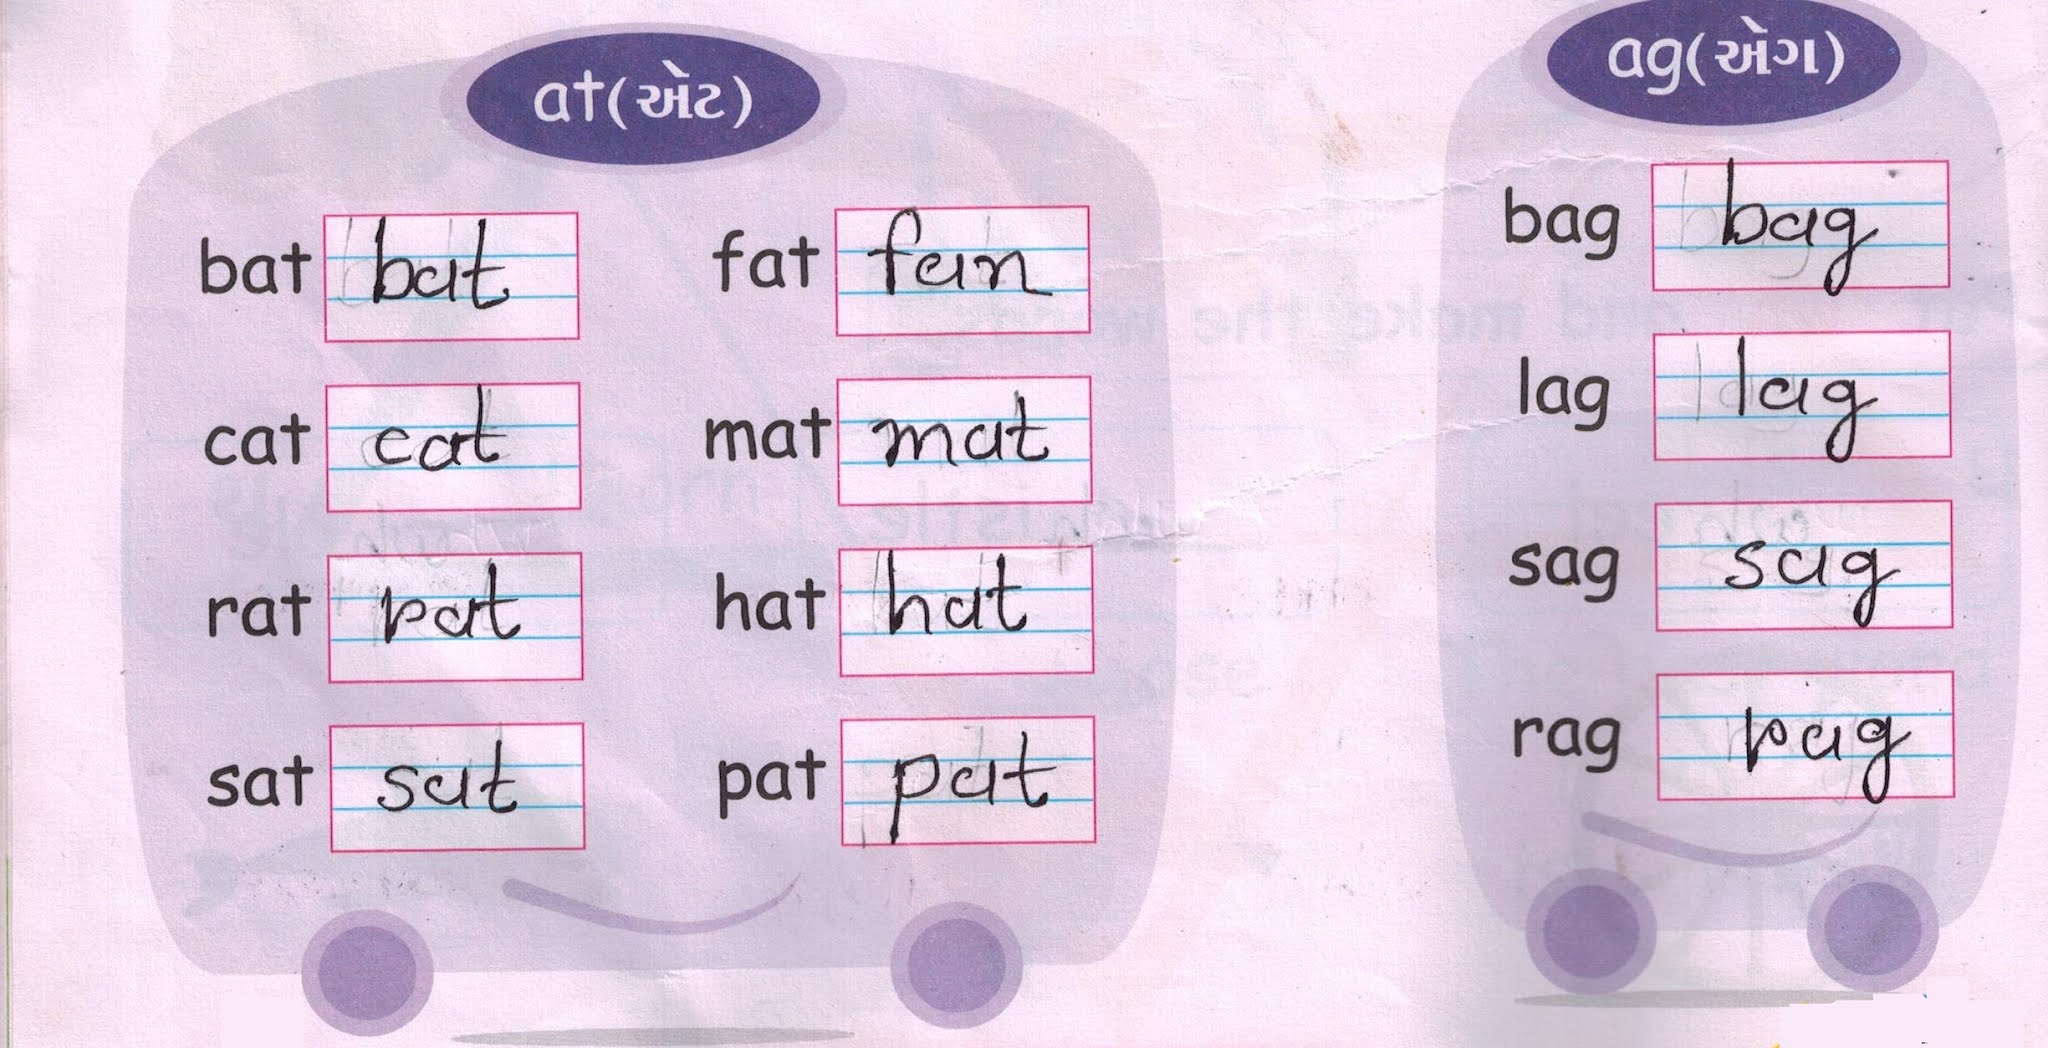 at(ઍટ)
bat bat fat fan
cat cat mat mat
rat rat hat hat
sat sat pat pat
ag(ઍગ)
bag bag
lag lag
sag sag
rag rag